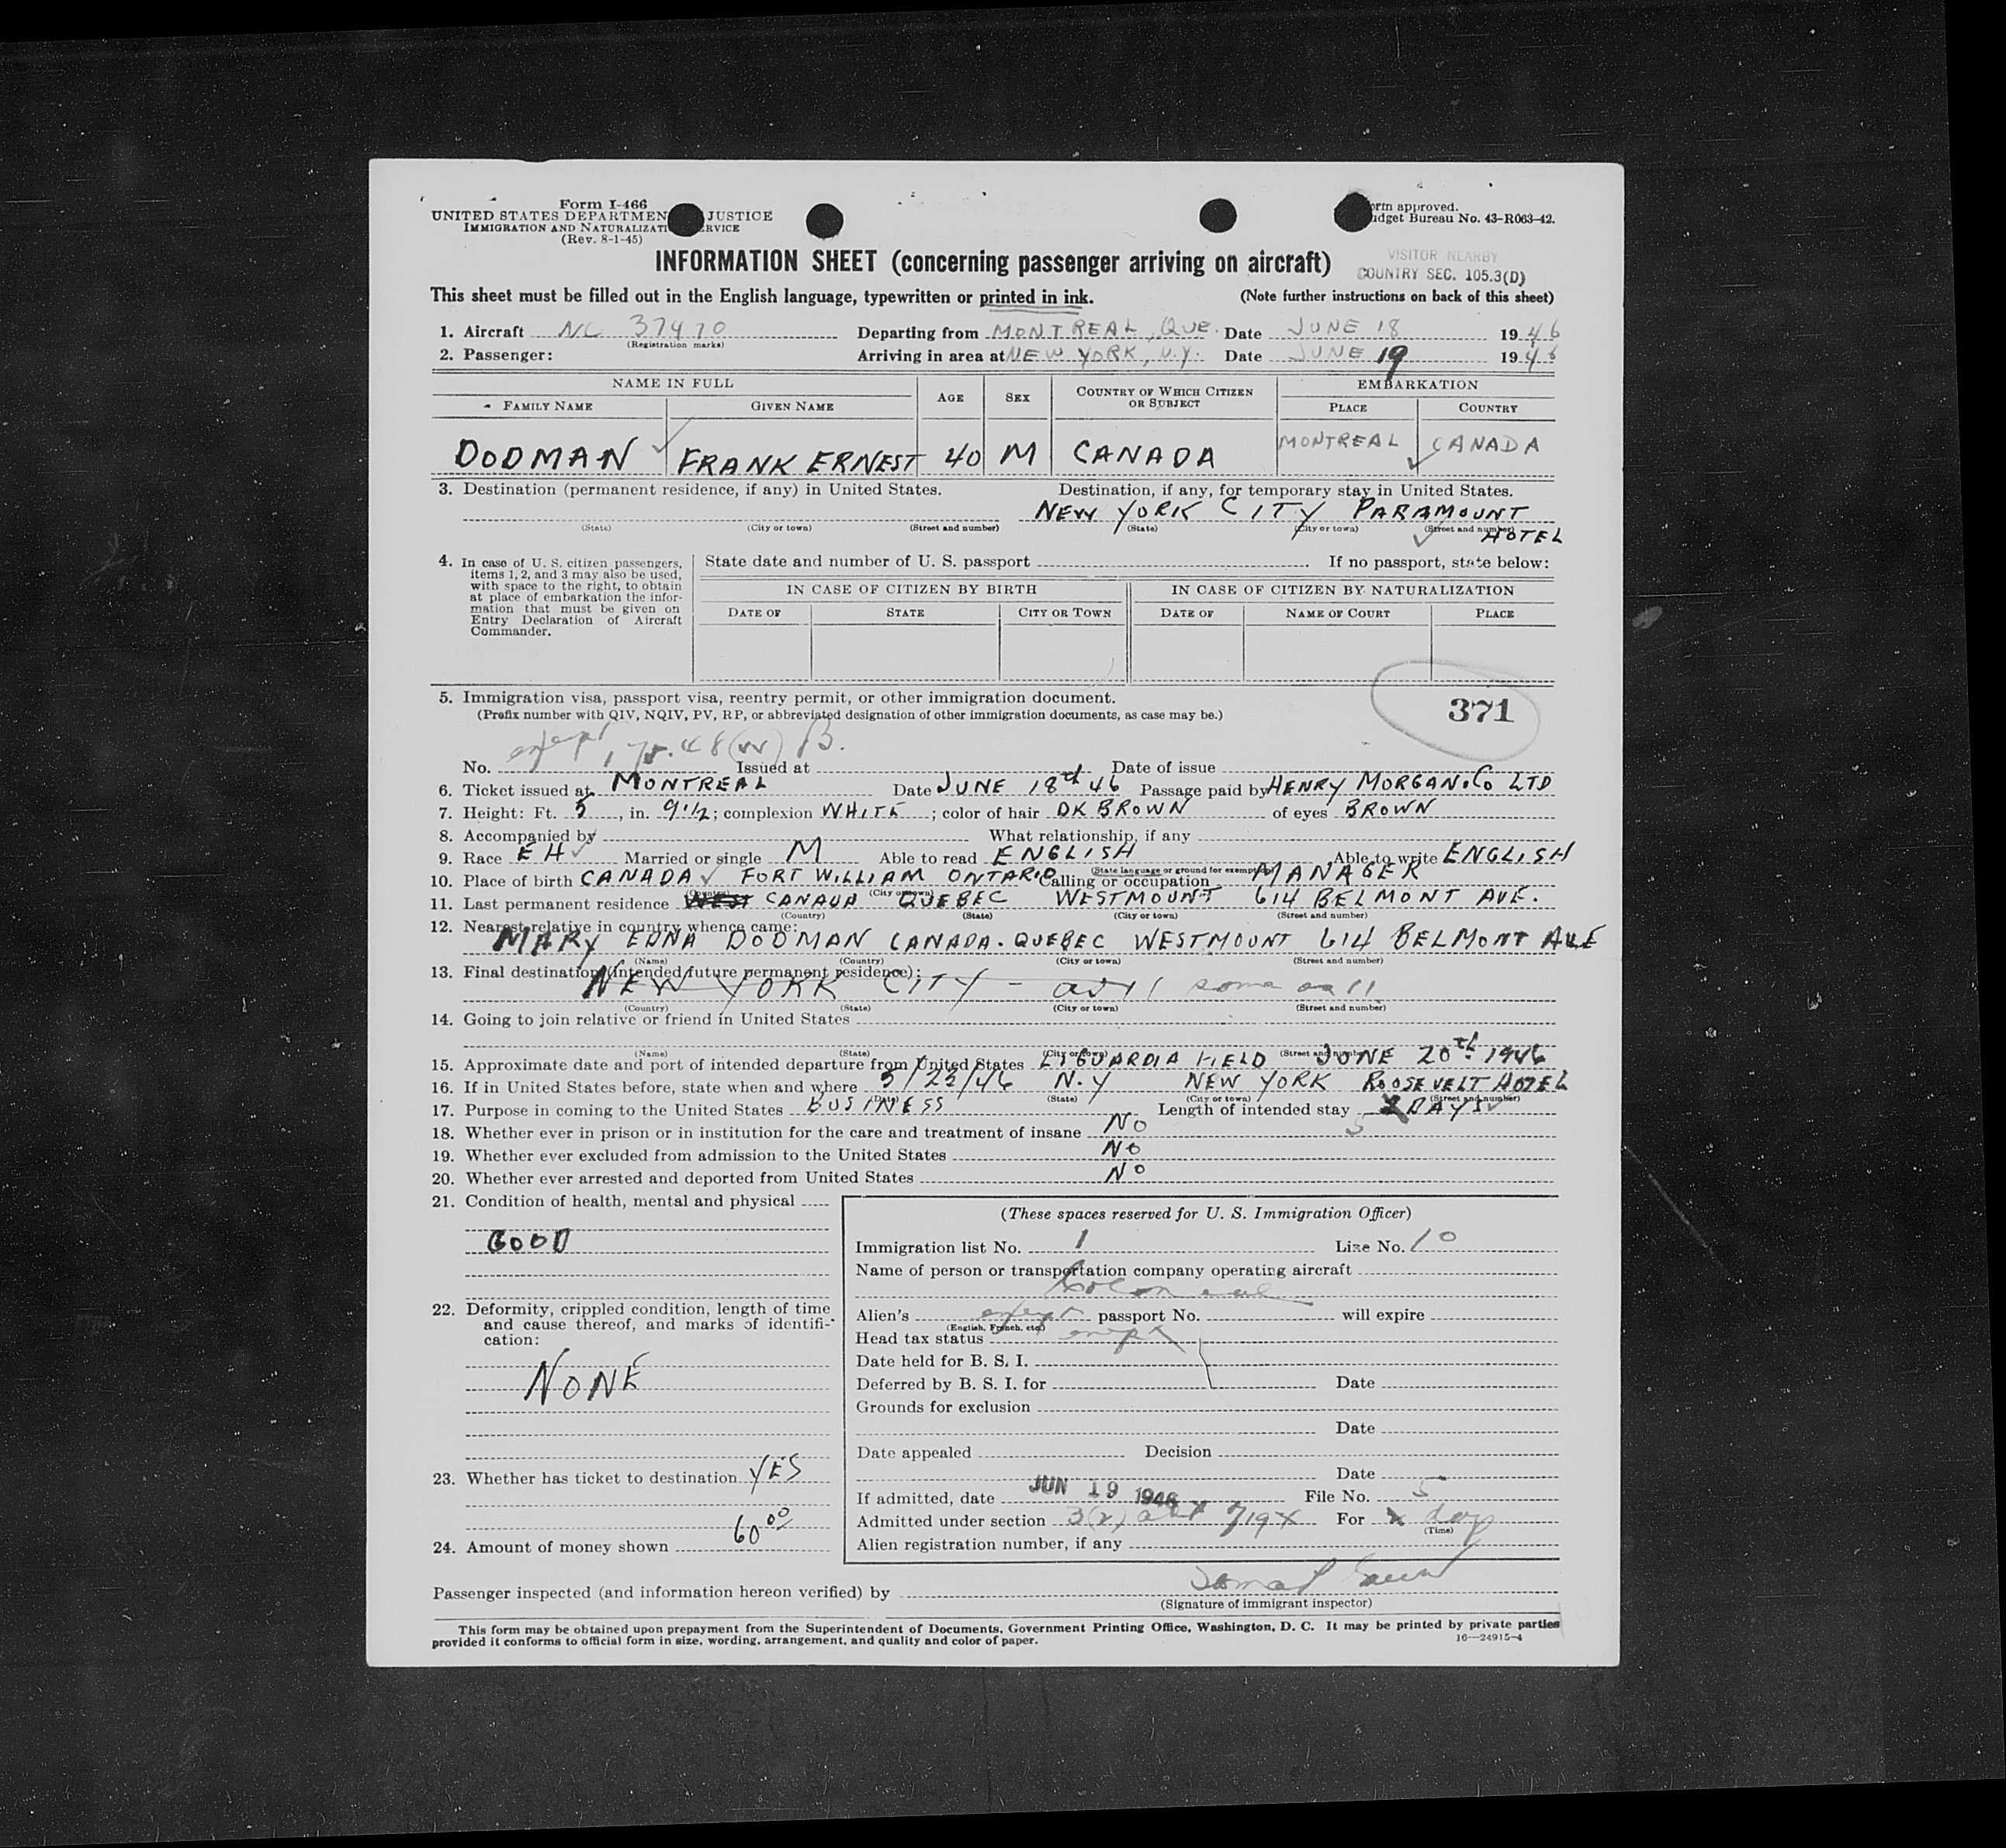 Form I-466
UNITED STATES DEPARTMEN JUSTICE
IMMIGRATION AND NATURALIZATI RVICE
(Rev. 8-1-45)
orm approved.
udget Bureau No. 43-R063-42.
INFORMATION SHEET (concerning passenger arriving on aircraft)
VISITOR NEARBY
COUNTRY SEC. 105.3(D)
This sheet must be filled out in the English language, typewritten or printed in ink. (Note further instructions on back of this sheet)
1. Aircraft NC 37470 Departing from MONTREAL, QUE. Date JUNE 18 1946
(Registration marks)
2. Passenger: Arriving in area at NEW YORK, N.Y. Date JUNE 19 1946
NAME IN FULL EMBARKATION
FAMILY NAME GIVEN NAME AGE SEX COUNTRY OF WHICH CITIZEN OR SUBJECT PLACE COUNTRY
DODMAN FRANK ERNEST 40 M CANADA MONTREAL CANADA
3. Destination (permanent residence, if any) in United States. Destination, if any, for temporary stay in United States.
NEW YORK CITY PARAMOUNT
(State) (City or town) (Street and number) (State) (City or town) (Street and number)
HOTEL
4. In case of U. S. citizen passengers, items 1, 2, and 3 may also be used, with space to the right, to obtain at place of embarkation the information that must be given on Entry Declaration of Aircraft Commander.
State date and number of U. S. passport If no passport, state below:
IN CASE OF CITIZEN BY BIRTH IN CASE OF CITIZEN BY NATURALIZATION
DATE OF STATE CITY OR TOWN DATE OF NAME OF COURT PLACE
5. Immigration visa, passport visa, reentry permit, or other immigration document.
371
(Prefix number with QIV, NQIV, PV, RP, or abbreviated designation of other immigration documents, as case may be.)
No. Issued at Date of issue
6. Ticket issued at MONTREAL Date JUNE 18th 46 Passage paid by HENRY MORGAN & CO LTD
7. Height: Ft. 5, in. 9 1/2; complexion WHITE; color of hair DK BROWN of eyes BROWN
8. Accompanied by What relationship, if any
9. Race EH Married or single M Able to read ENGLISH Able to write ENGLISH
(State language or ground for exemption)
10. Place of birth CANADA FORT WILLIAM ONTARIO Calling or occupation MANAGER
(Country) (City or town)
11. Last permanent residence WEST CANADA QUEBEC WESTMOUNT 614 BELMONT AVE.
(Country) (State) (City or town) (Street and number)
12. Nearest relative in country whence came:
MARY EDNA DODMAN CANADA. QUEBEC WESTMOUNT 614 BELMONT AVE
(Name) (Country) (City or town) (Street and number)
13. Final destination (intended future permanent residence):
NEW YORK CITY -
(Country) (State) (City or town) (Street and number)
14. Going to join relative or friend in United States
(Name) (State) (City or town) (Street and number)
15. Approximate date and port of intended departure from United States LAGUARDIA FIELD JUNE 20th 1946
16. If in United States before, state when and where 5/22/46 N.Y NEW YORK ROOSEVELT HOTEL
(Date) (State) (City or town) (Street and number)
17. Purpose in coming to the United States BUSINESS Length of intended stay 2 DAYS
5
18. Whether ever in prison or in institution for the care and treatment of insane NO
19. Whether ever excluded from admission to the United States NO
20. Whether ever arrested and deported from United States NO
21. Condition of health, mental and physical
GOOD
22. Deformity, crippled condition, length of time and cause thereof, and marks of identification:
NONE
23. Whether has ticket to destination YES
24. Amount of money shown 60 00
(These spaces reserved for U. S. Immigration Officer)
Immigration list No. 1 Line No. 10
Name of person or transportation company operating aircraft
Colonial
Alien's exempt passport No. will expire
(English, French, etc.)
Head tax status exempt
Date held for B. S. I.
Deferred by B. S. I. for Date
Grounds for exclusion
Date
Date appealed Decision
Date
If admitted, date JUN 19 1946 File No.
5
Admitted under section 3(2) For days
(Time)
Alien registration number, if any
Passenger inspected (and information hereon verified) by
(Signature of immigrant inspector)
This form may be obtained upon prepayment from the Superintendent of Documents, Government Printing Office, Washington, D. C. It may be printed by private parties
provided it conforms to official form in size, wording, arrangement, and quality and color of paper.
16—24915-4